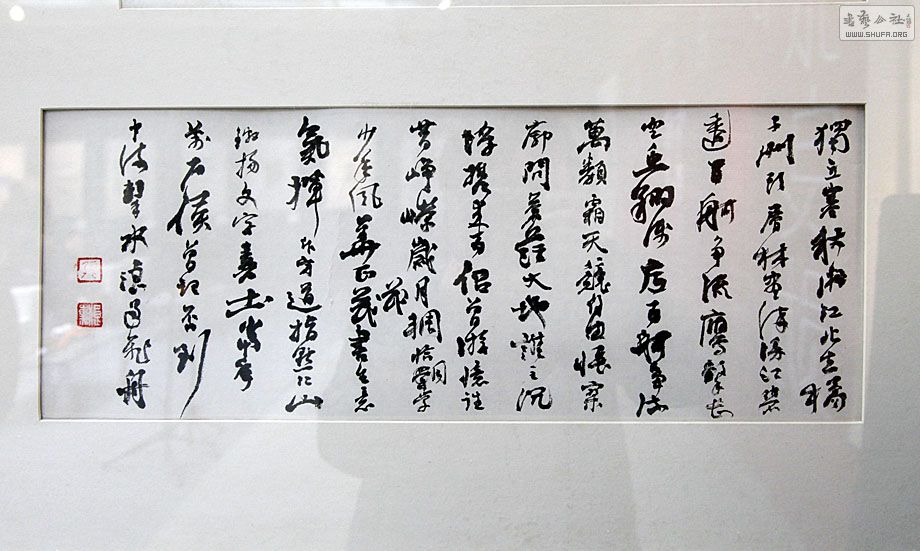 獨立寒秋湘江北去橘
子洲頭層林盡染漫江碧
透百舸爭流鷹擊長
空魚翔淺底百舸爭流
萬類霜天競自由悵寥
廓問蒼茫大地誰主沉
浮攜來百侶曾游憶往
昔崢嶸歲月稠恰同學
少年風華正茂書生意
氣揮斥方遒指點江山
激揚文字糞土當年
萬戶侯曾記否到
中流擊水浪遏飛舟
书艺公社
WWW.SHUFA.ORG